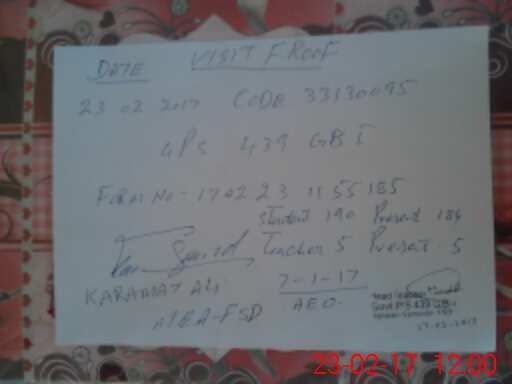 VISIT PROOF
DATE
23 02 2017 CODE 33130095
GPS 439 GB I
FORM No - 170223 1155185
Student 190 Present 184
Teacher 5 Present - 5
KARAMAT ALI
7-1-17
AEO
MEA-FSD
Head Teacher
Govt P/S 439 GB-I
23.02.2017
23-02-17 12:00